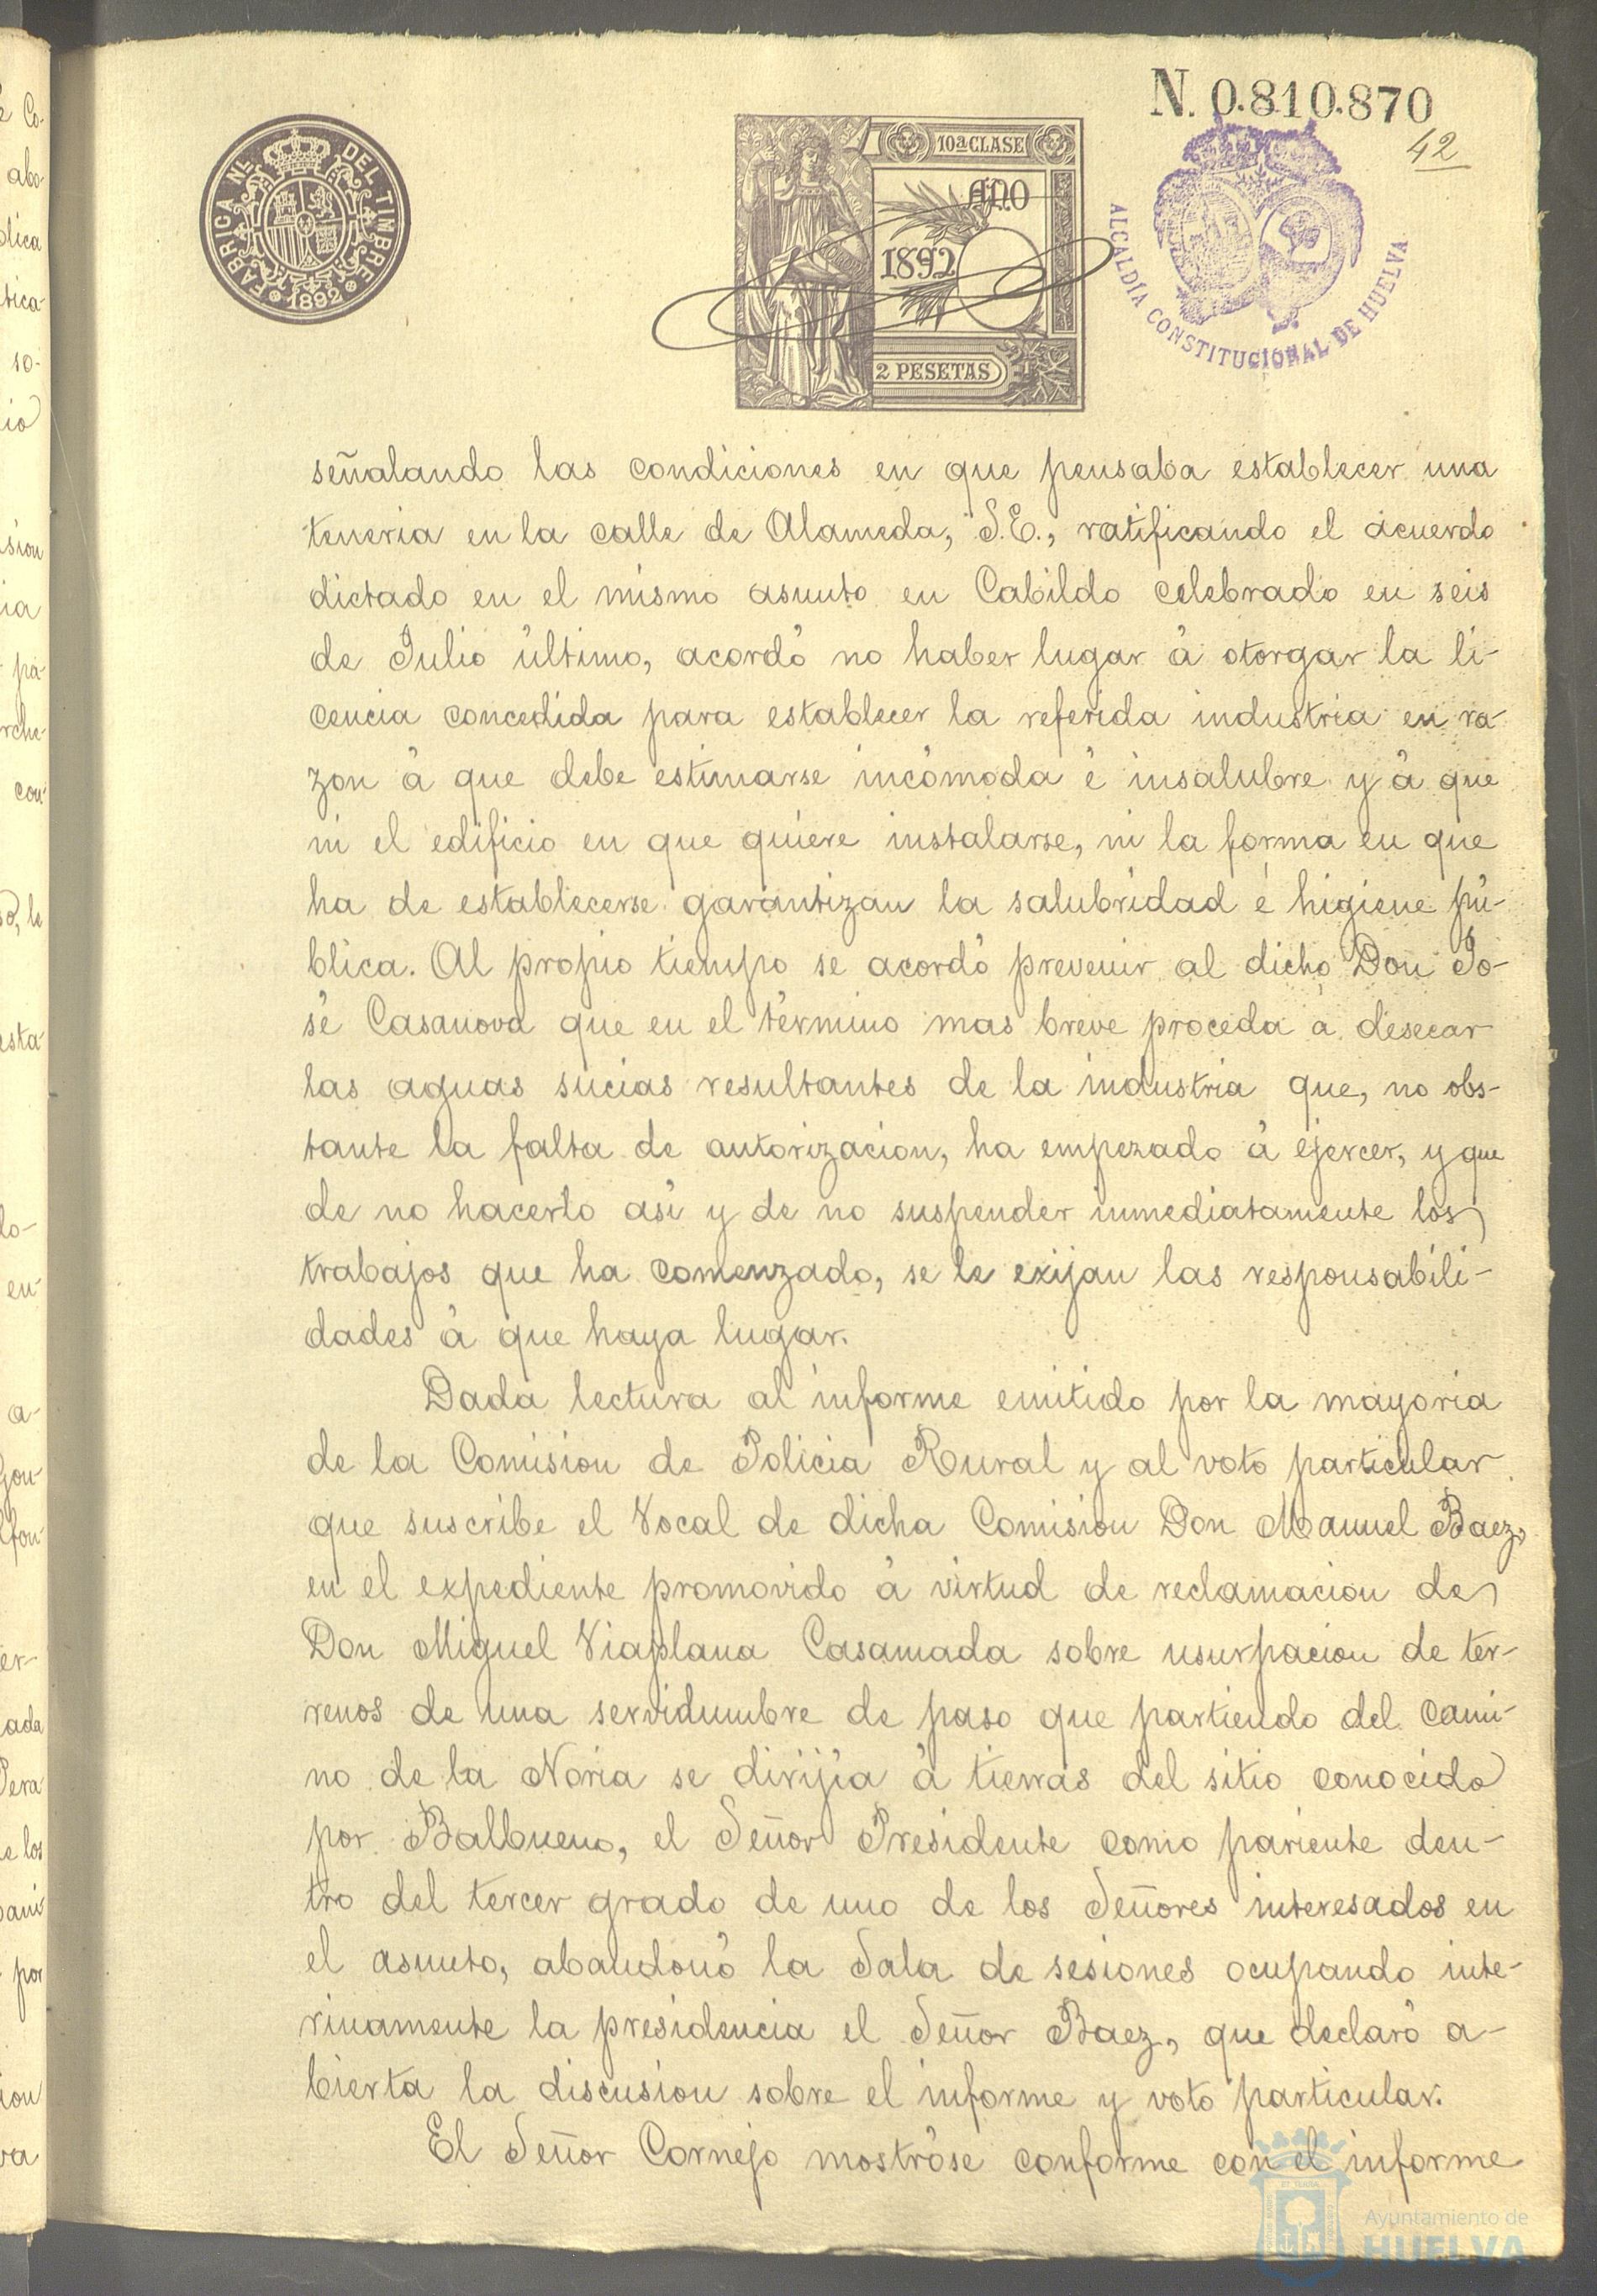 N. 0.810.870
42
FABRICA NL. DEL TIMBRE
1892
10ª CLASE
AÑO
1892
2 PESETAS
ALCALDÍA CONSTITUCIONAL DE HUELVA
señalando las condiciones en que pensaba establecer una
teneria en la calle de Alameda, S.E., ratificando el acuerdo
dictado en el mismo asunto en Cabildo celebrado en seis
de Julio último, acordó no haber lugar á otorgar la li-
cencia concedida para establecer la referida industria en ra-
zon á que debe estimarse incómoda é insalubre y á que
ni el edificio en que quiere instalarse, ni la forma en que
ha de establecerse garantizan la salubridad é higiene pú-
blica. Al propio tiempo se acordó prevenir al dicho Don Jo-
sé Casanova que en el término mas breve proceda á desecar
las aguas sucias resultantes de la industria que, no obs-
tante la falta de autorizacion, ha empezado á ejercer, y que
de no hacerlo así y de no suspender inmediatamente los
trabajos que ha comenzado, se le exijan las responsabili-
dades á que haya lugar.
Dada lectura al informe emitido por la mayoria
de la Comision de Policia Rural y al voto particular
que suscribe el Vocal de dicha Comision Don Manuel Baez,
en el expediente promovido á virtud de reclamacion de
Don Miguel Viaplana Casamada sobre usurpacion de ter-
renos de una servidumbre de paso que partiendo del cami-
no de la Noria se dirijía á tierras del sitio conocido
por Balbueno, el Señor Presidente como pariente den-
tro del tercer grado de uno de los Señores interesados en
el asunto, abandonó la Sala de sesiones ocupando inte-
rinamente la presidencia el Señor Baez, que declaró a-
bierta la discusion sobre el informe y voto particular.
El Señor Cornejo mostróse conforme con el informe
Ayuntamiento de
HUELVA